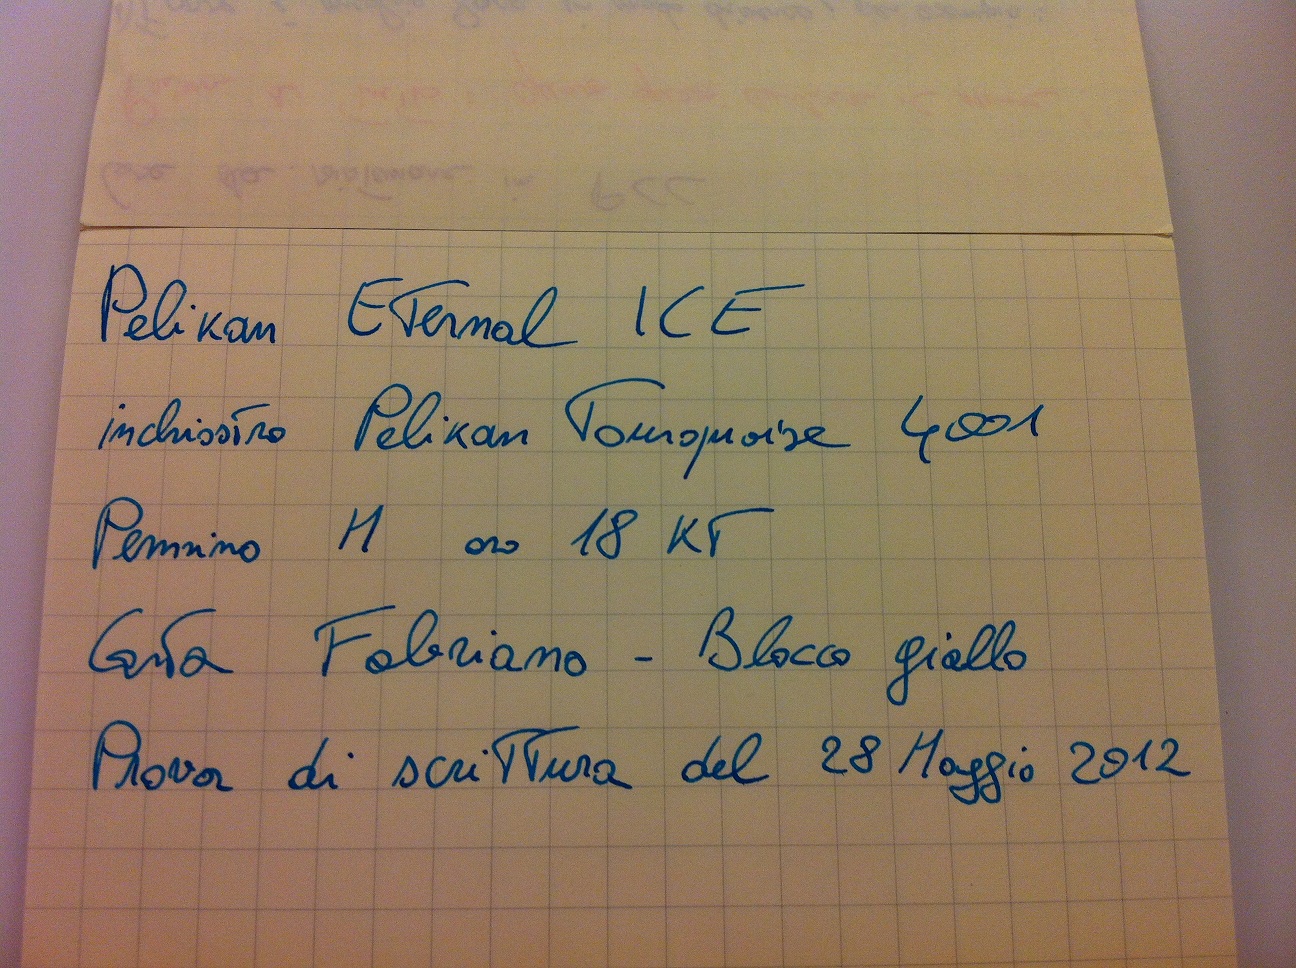 Pelikan ETernal ICE
inchiostro Pelikan Tourquoise 4001
Pennino M oro 18 KT
Carta Fabriano - Blocco giallo
Prova di scrittura del 28 Maggio 2012